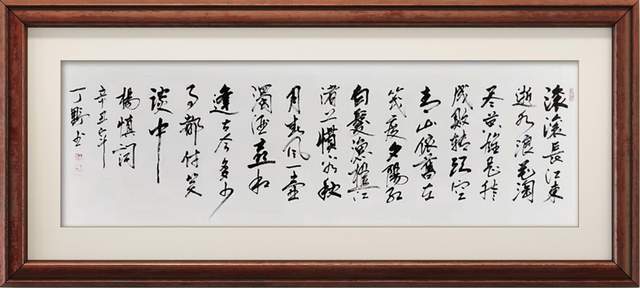 滚滚長江東
逝水浪花淘
尽英雄是非
成敗转头空
青山依舊在
幾度夕陽红
白髮漁樵江
渚上慣看秋
月春风一壶
濁酒喜相
逢古今多少
事都付笑
談中
楊慎詞
辛丑年
丁野书